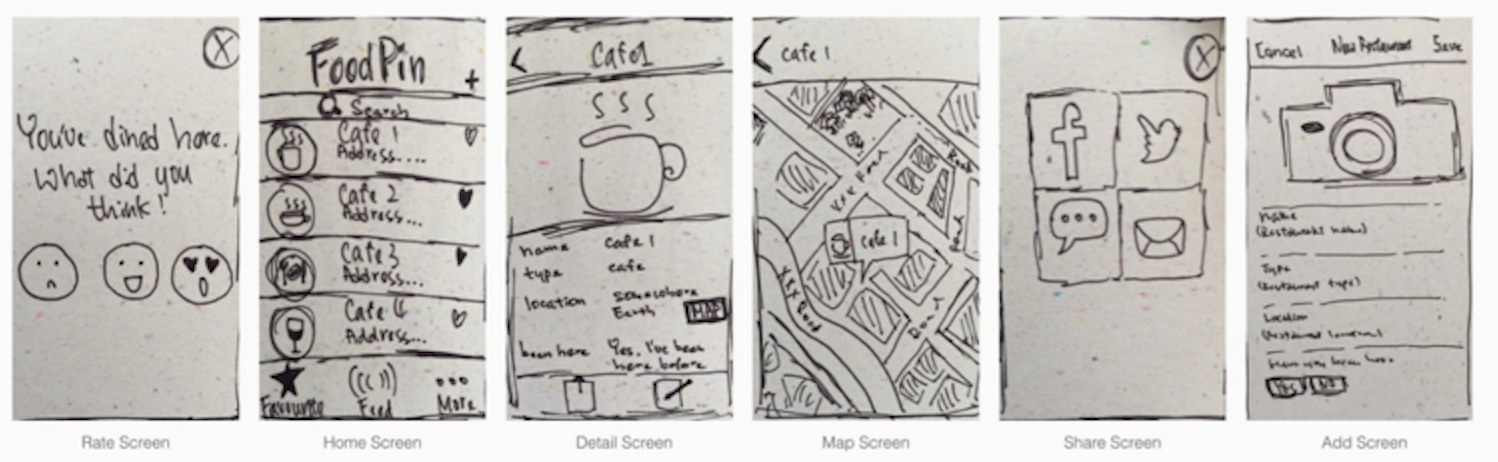 X
You've dined here.
What did you
think!
Rate Screen
FoodPin
+
Search
Cafe 1
Address.....
Cafe 2
Address...
Cafe 3
Address...
Cafe 4
Address...
Favourite Feed More
Home Screen
< Cafe1
name cafe 1
type cafe
location somewhere
Earth MAP
been here Yes, I've been
here before
Detail Screen
< cafe 1
XXX Road
Road
Road
Cafe 1
XXX Road
Road
Map Screen
X
f
Share Screen
Cancel New Restaurant Save
Name
(Restaurant name)
Type
(Restaurant type)
Location
(Restaurant location)
Have you been here
YES NO
Add Screen